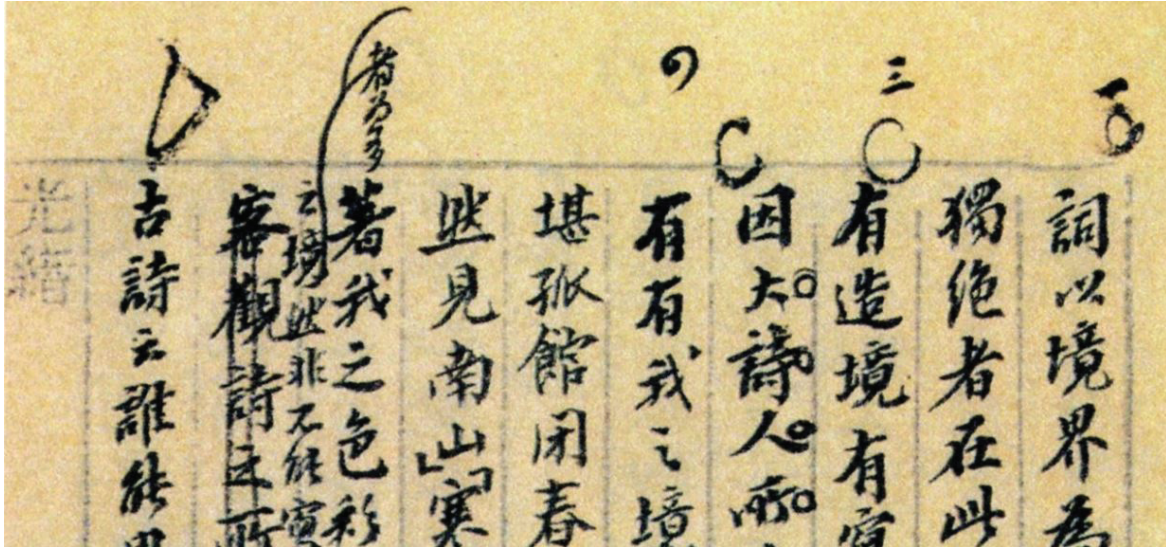 一
詞以境界為
獨絕者在此
三
有造境有寫
因大詩人所
有有我之境
堪孤館閉春
然見南山」「寒
著我之色彩
者為多
之境然非不能寫
客觀詩
古詩云誰能思
光緒